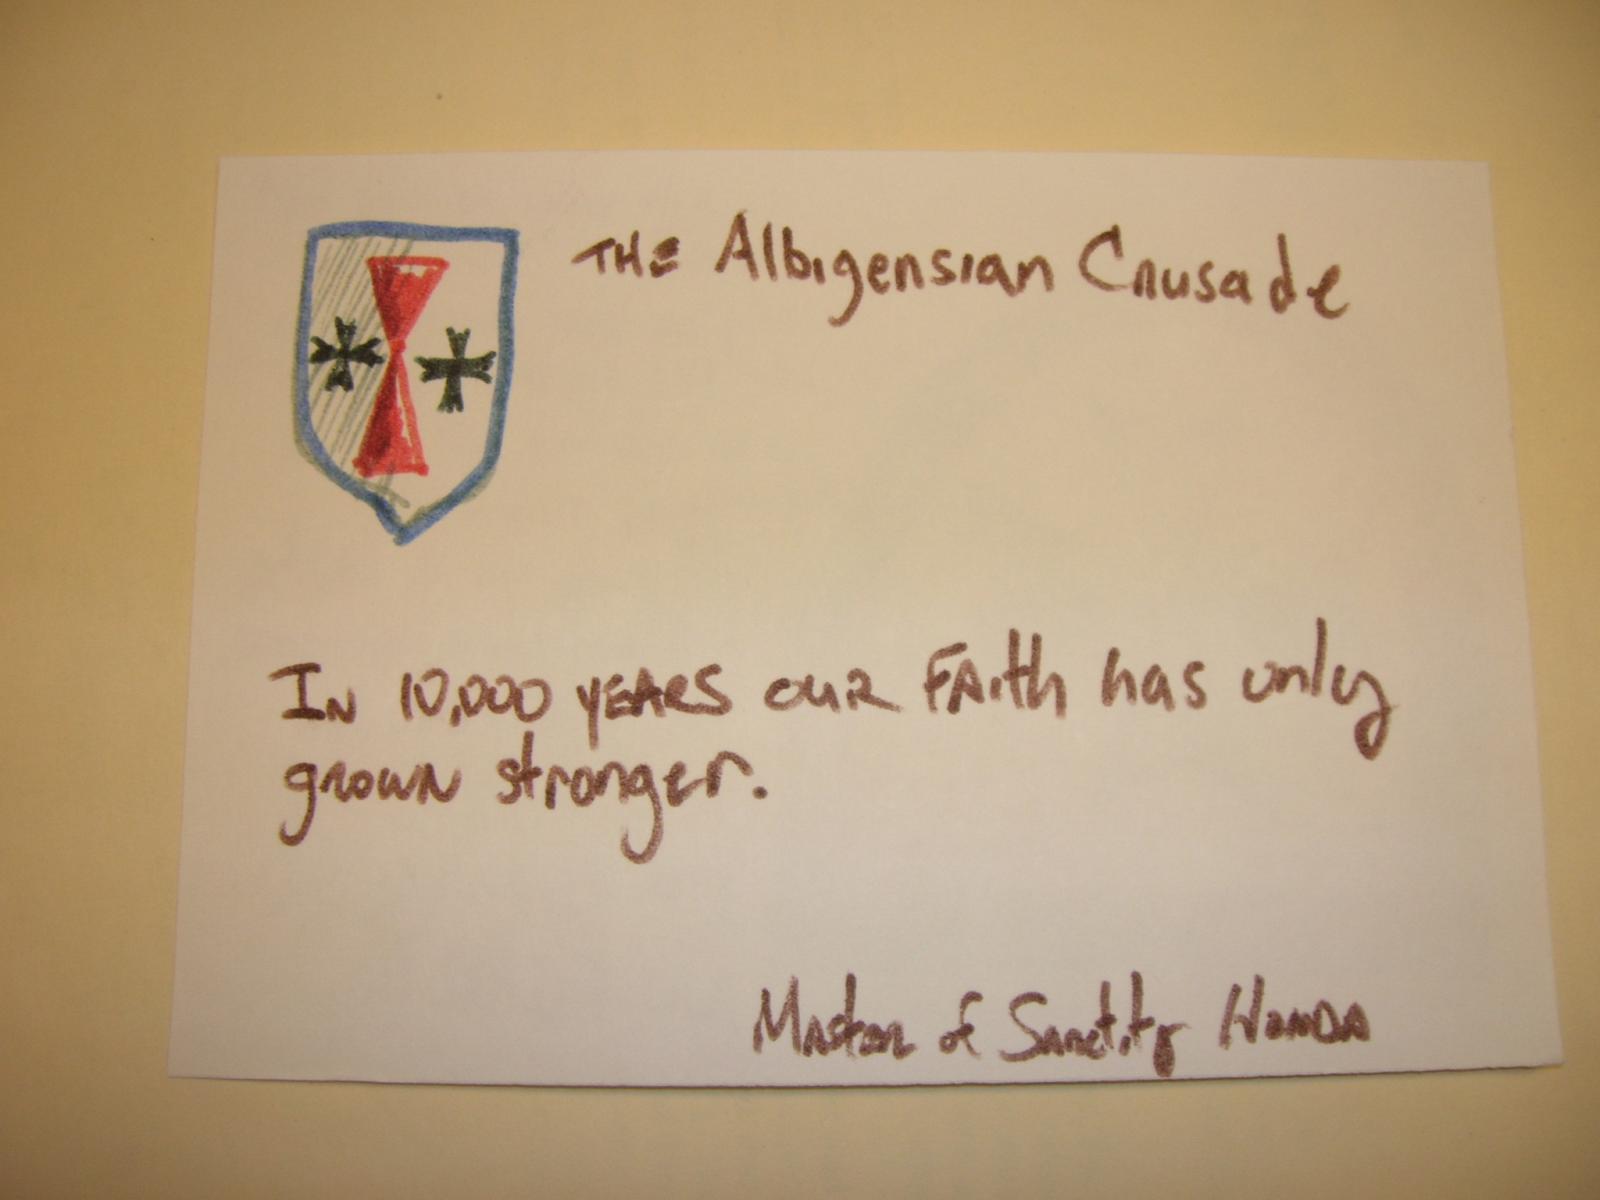 THE Albigensian Crusade
In 10,000 YEARS OUR FAith has only
grown stronger.
Master of Sanctity